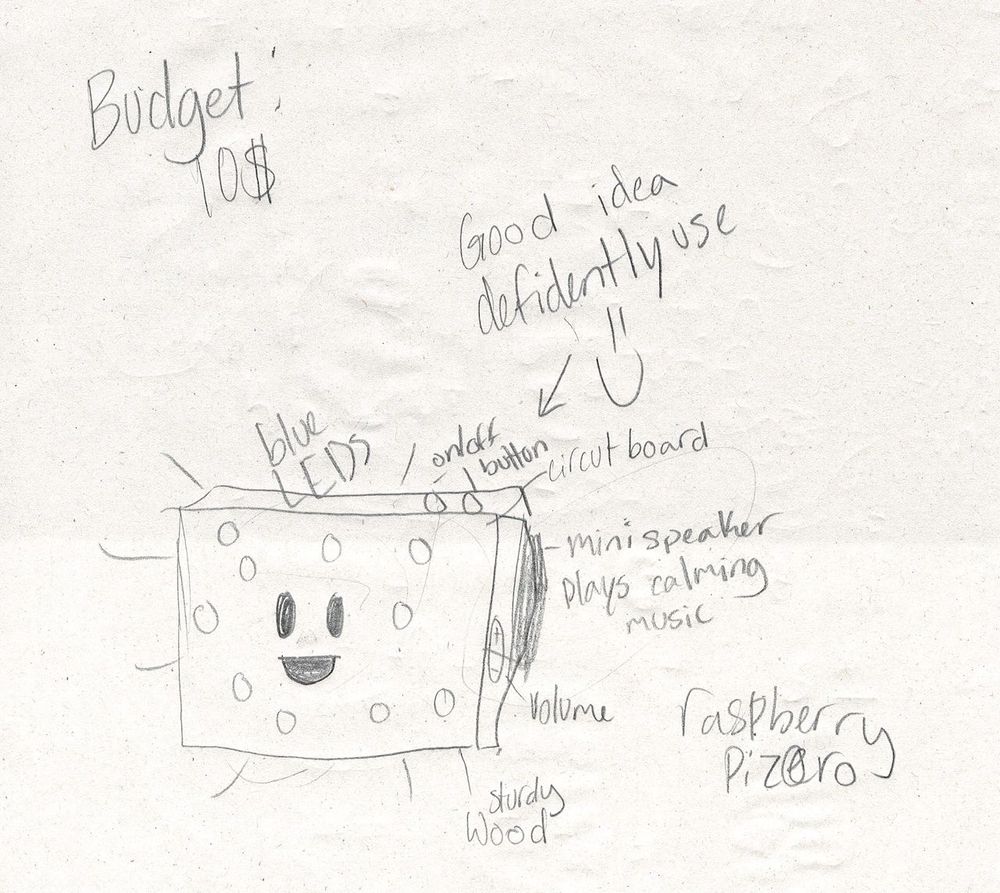 Budget:
10$
Good idea
defidently use
blue
LEDs
on/off
button
circut board
mini speaker
plays calming
music
volume
raspberry
Pi zero
sturdy
Wood